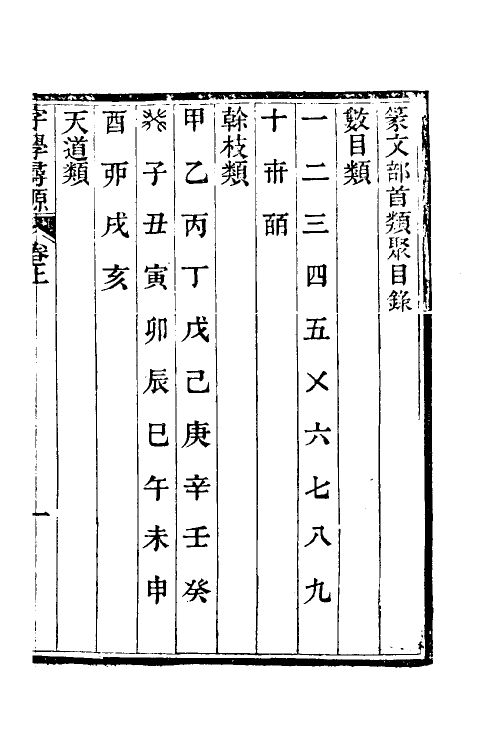 篆文部首類聚目錄
數目類
一二三四五㐅六七八九
十卅皕
榦枝類
甲乙丙丁戊己庚辛壬癸
子丑寅卯辰巳午未申
酉戼戌亥
天道類
字學尋源 卷上 一